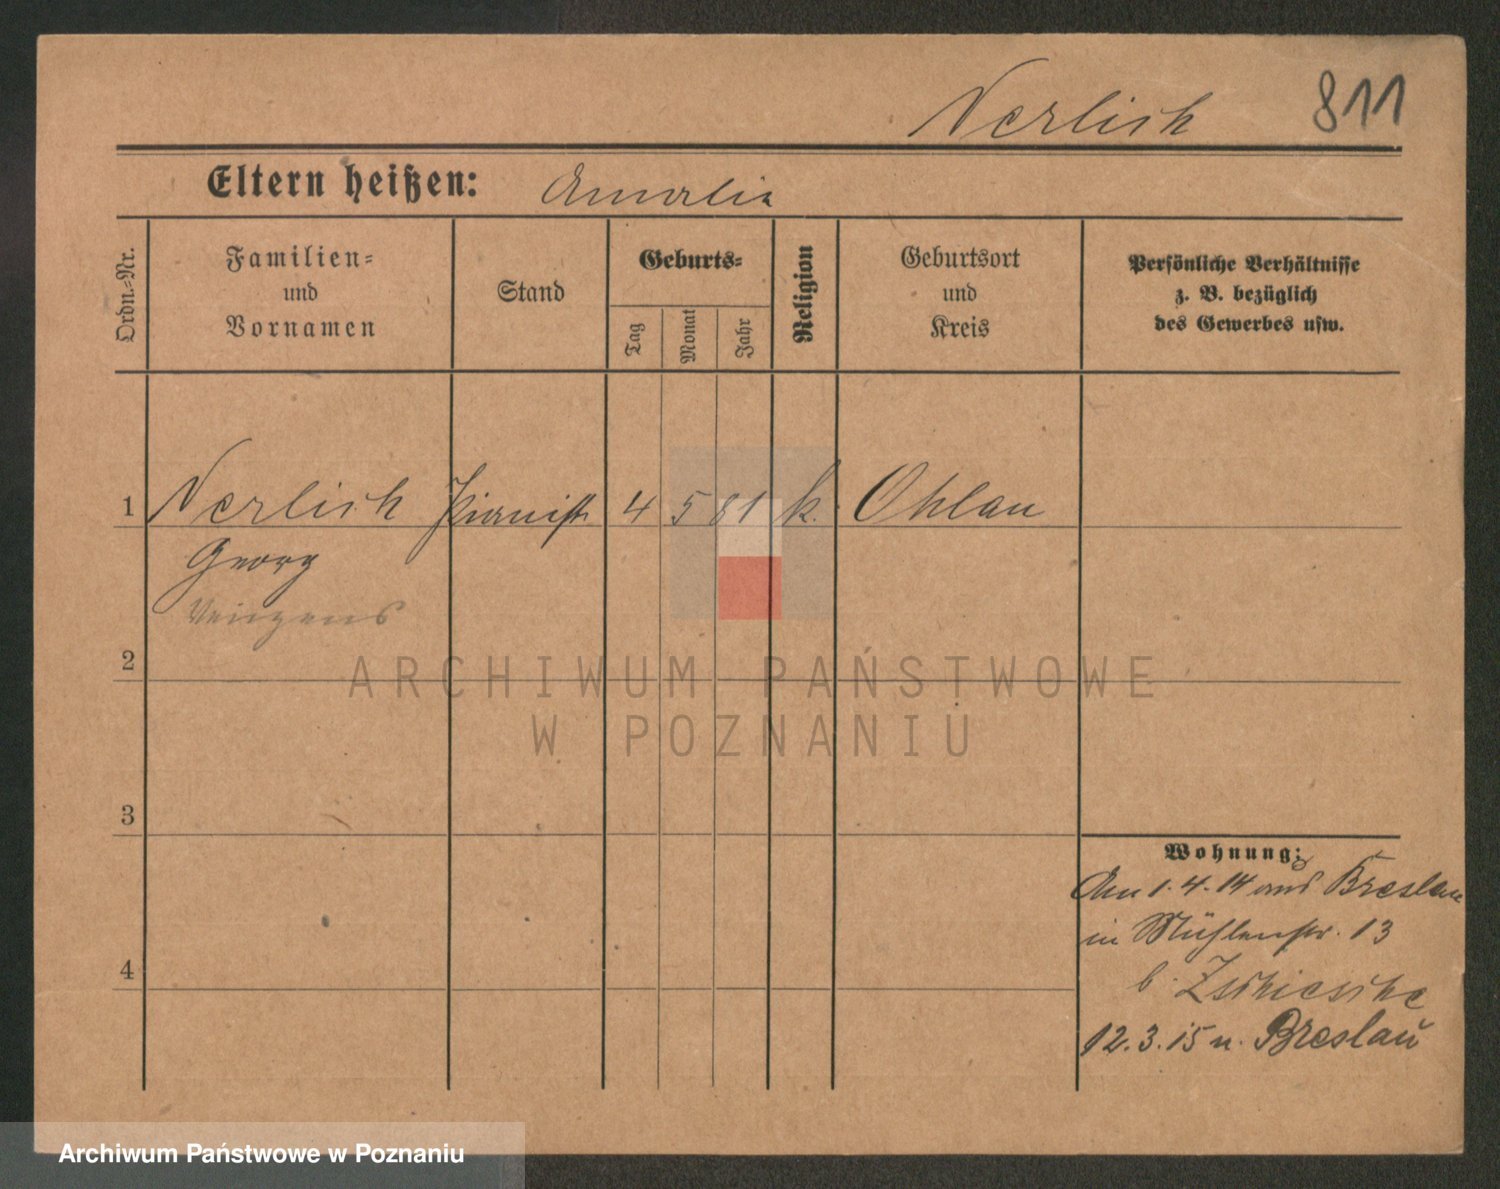 Nerlich 811
Eltern heißen: Amalia
Ordn.-Nr.
Familien-
und
Vornamen
Stand
Geburts-
Tag
Monat
Jahr
Religion
Geburtsort
und
Kreis
Persönliche Verhältnisse
z. B. bezüglich
des Gewerbes usw.
1 Nerlich Pianist 4 5 81 k. Ohlau
Georg
2
3
4
Wohnung:
Am 1.4.14 aus Breslau
in Mühlenstr. 13
b. Zschiesche
12.3.15 n. Breslau
ARCHIWUM PAŃSTWOWE
W POZNANIU
Archiwum Państwowe w Poznaniu